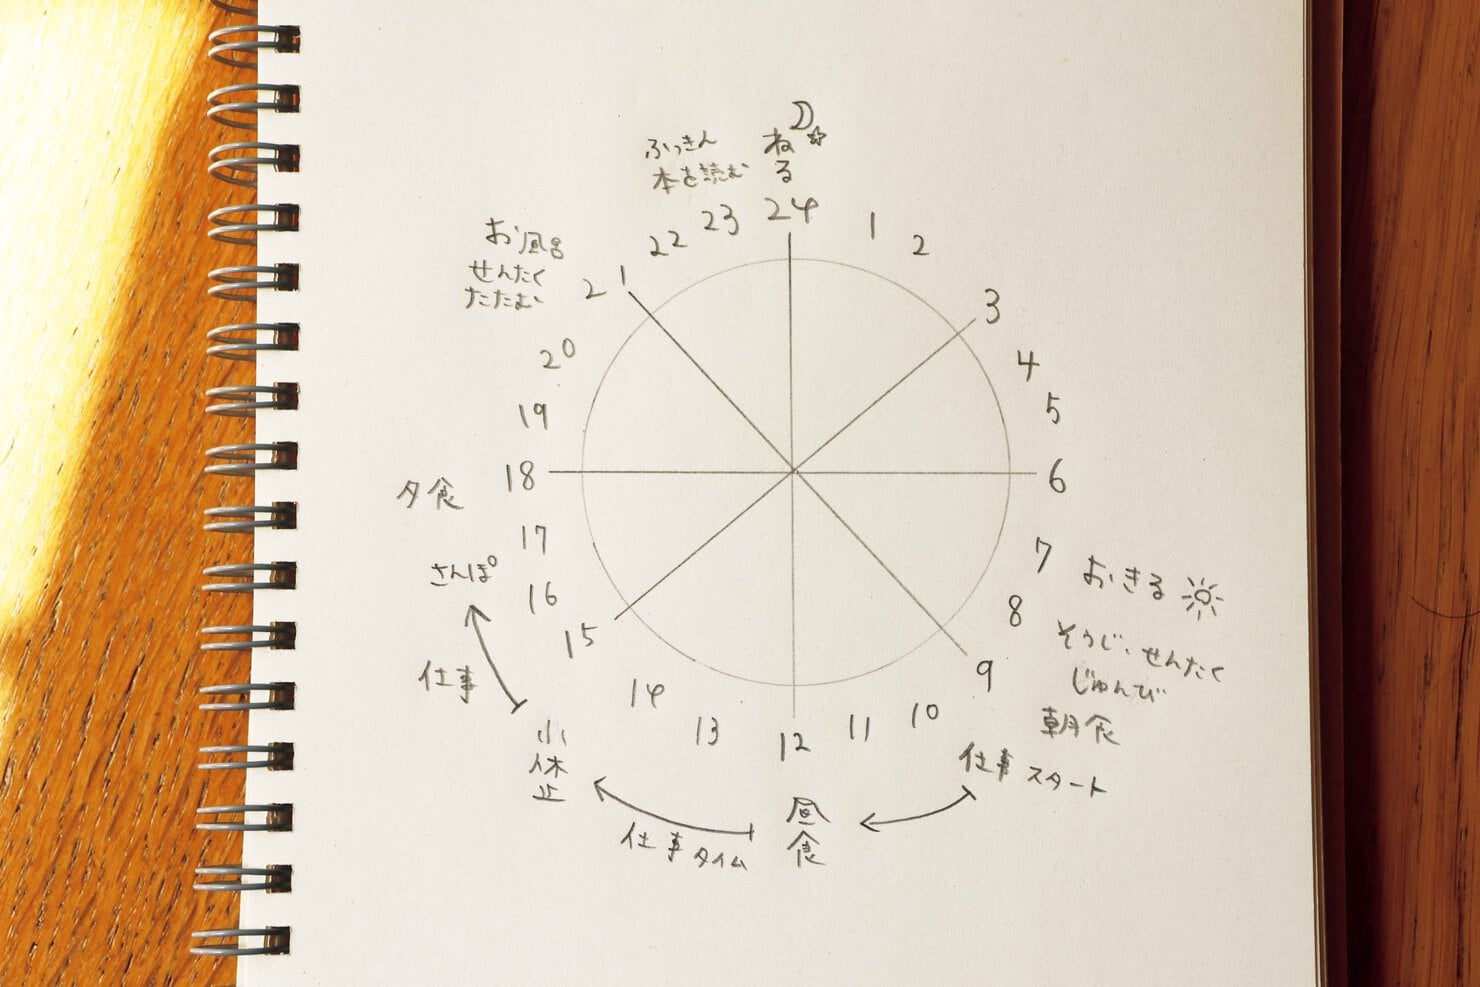 ねる
24
1
2
3
4
5
6
7
おきる
8
そうじ、せんたく
じゅんび
9
朝食
10
仕事スタート
11
12
昼食
13
仕事タイム
14
小休止
15
仕事
16
さんぽ
17
18
夕食
19
20
21
お風呂
せんたく
たたむ
22
23
ふっきん
本を読む